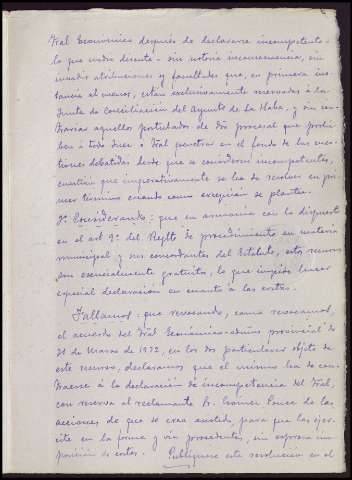 tral Económico después de declararse incompetente -
lo que nadie discute - sin notoria incongruencia, sin
invadir atribuciones y facultades que, en primera ins-
tancia al menos, están exclusivamente reservadas á la
Junta de Conciliación del Aynto de La Haba, y sin con-
trariar aquellos postulados de Dro procesal que prohi-
ben á todo Juez ó Tral penetrar en el fondo de las cues-
tiones debatidas desde que se consideran incompetentes,
cuestión que imperativamente se ha de resolver en pri-
mer término cuando como excepción se plantea.
9º Considerando: que en armonía con lo dispuesto
en el art 9º del Regltº de procedimiento en materia
municipal y sus concordantes del Estatuto, estos recursos
son esencialmente gratuitos, lo que impide hacer
especial declaración en cuanto á las costas.
Fallamos: que revocando, como revocamos,
el acuerdo del Tral Económico-admvo provincial de
31 de Marzo de 1932, en los dos particulares objeto de
este recurso, declaramos que el mismo ha de con-
traerse á la declaración de incompetencia del Tral,
con reserva al reclamante Sr. Gómez Ponce de las
acciones de que se crea asistido, para que las ejer-
cite en la forma y vía procedentes, sin expresa im-
posición de costas. Publíquese esta resolución en el